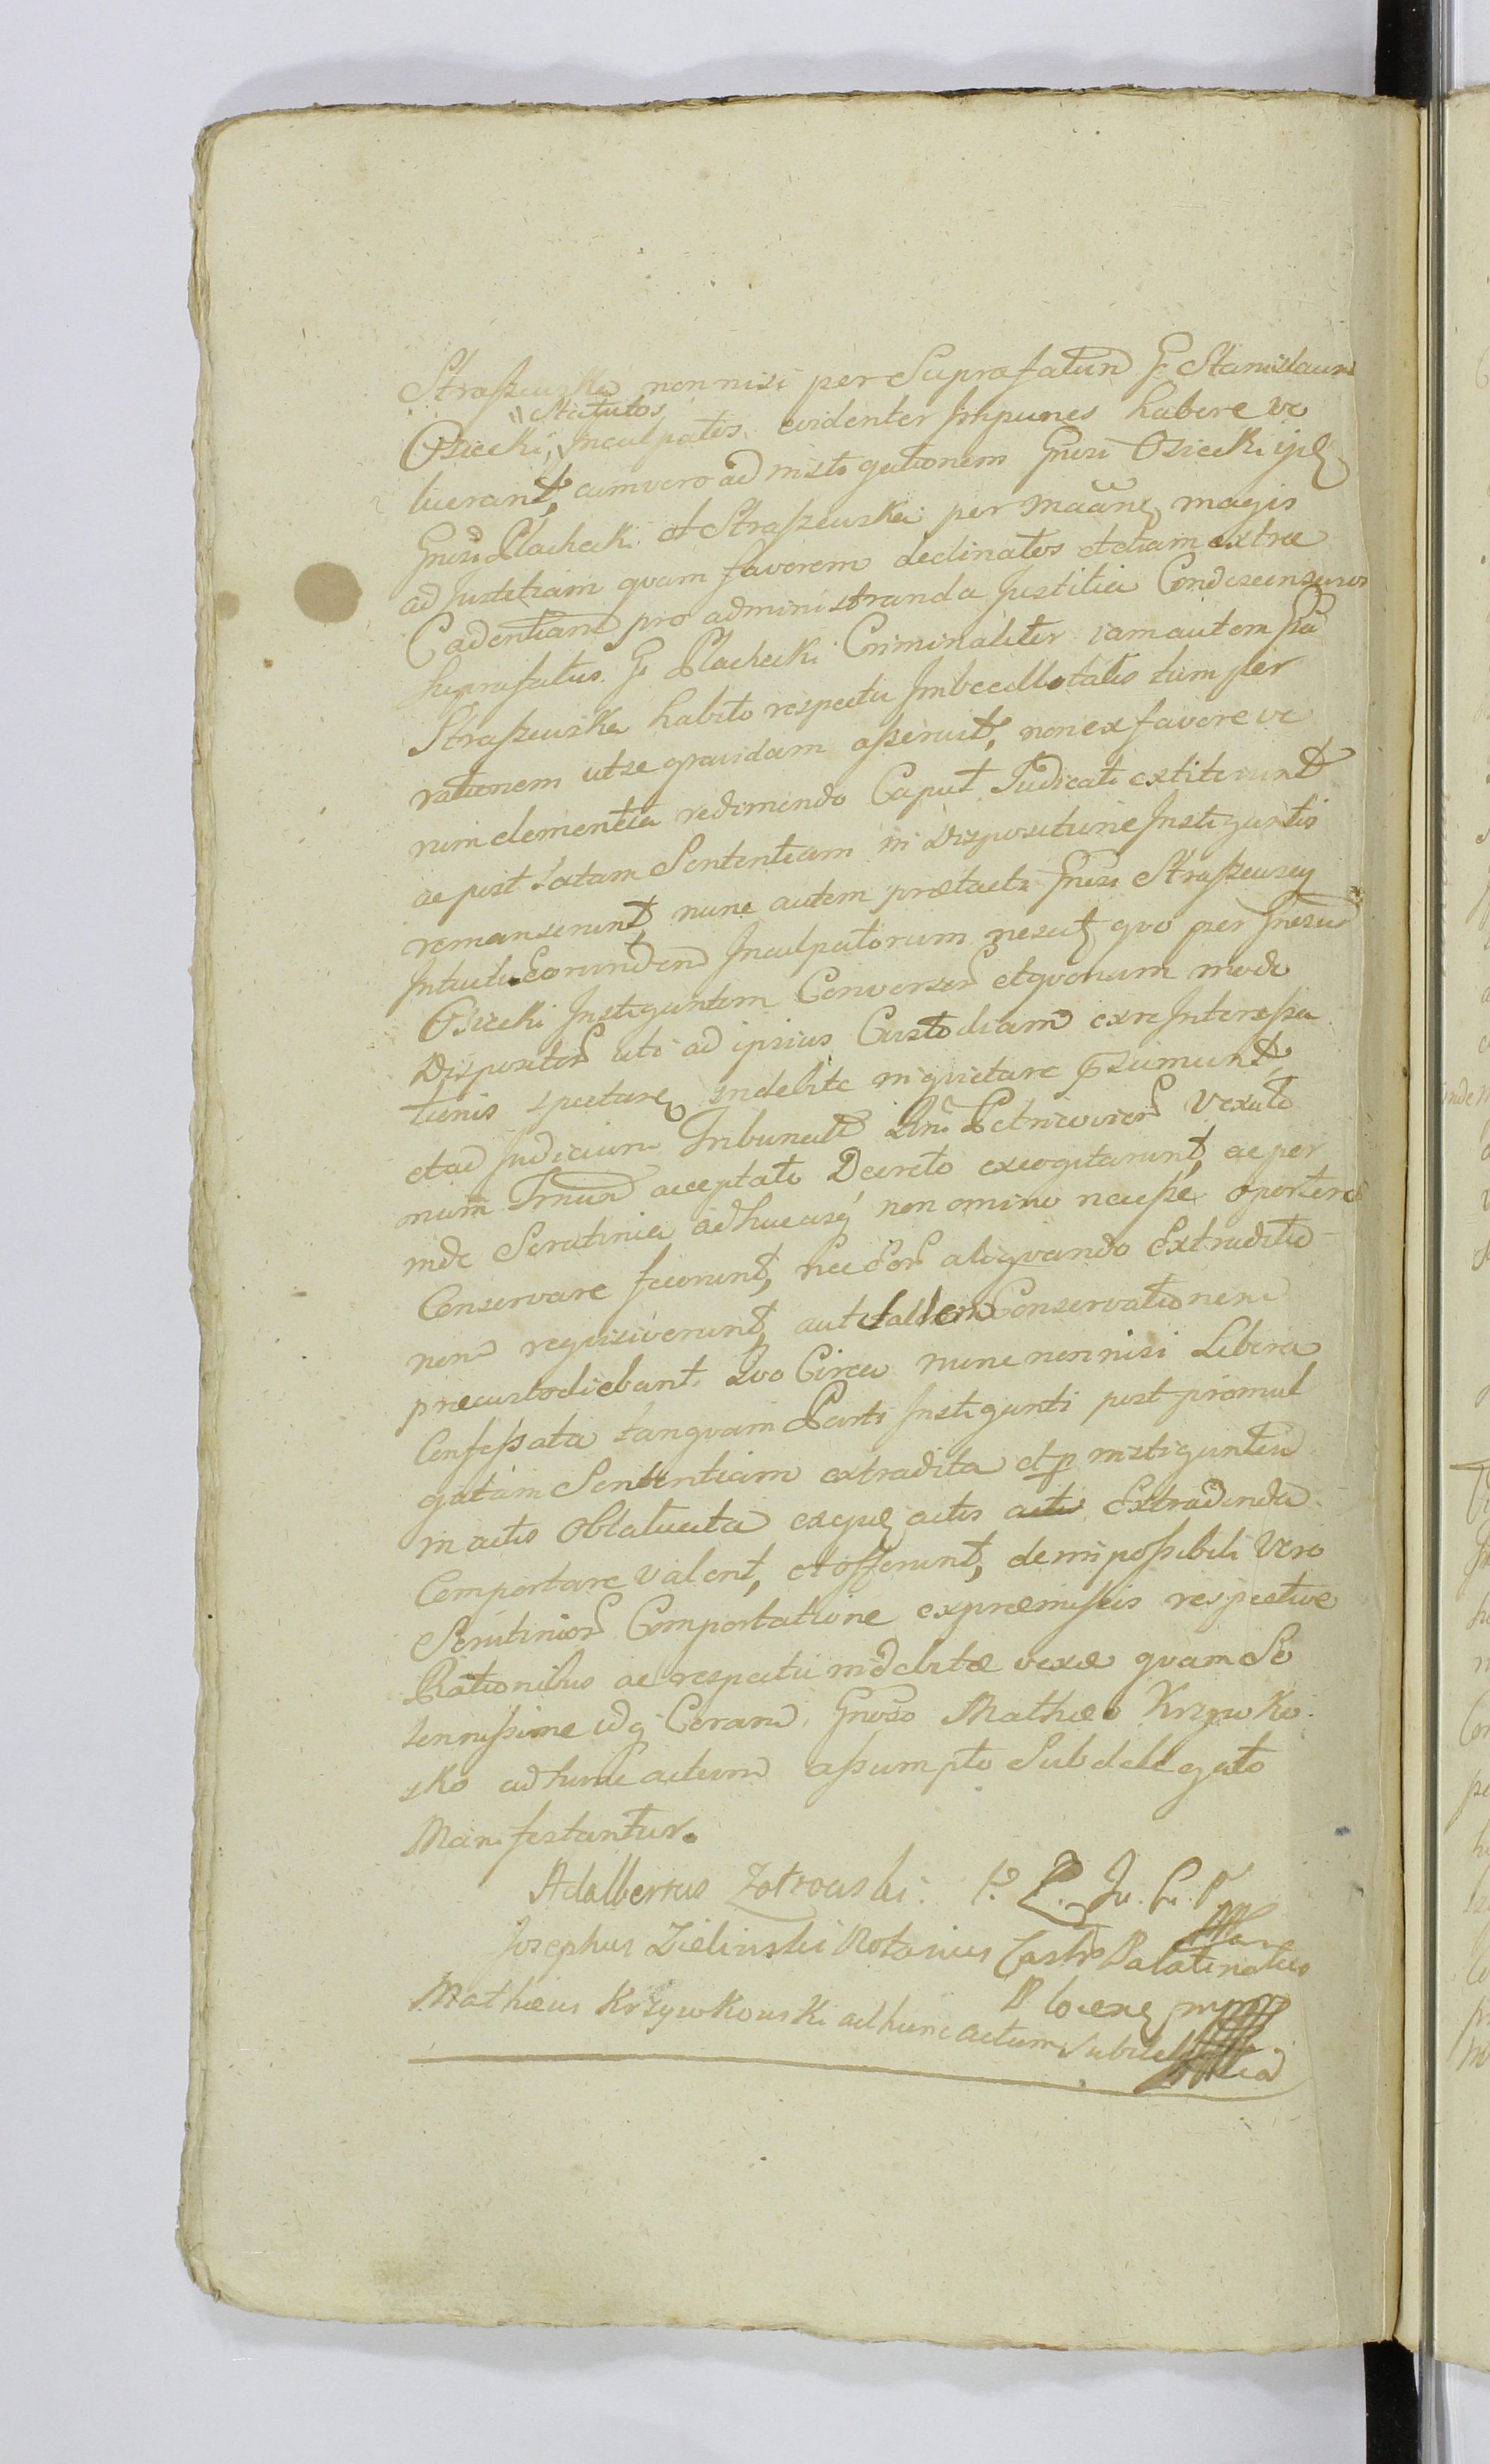 Straszewska non nisi per Suprafatum G. Stanislaum
"Statutos
Osiecki, Inculpatos evidenter Impunes habere vo
luerant, cum vero ad instigationem Gnosi Osiecki ipse
Gnosi Płachecki et Straszewska per magis
ad Justitiam quam favorem declinatos et etiam extra
Cadentiam pro administranda Justitia Condescensuros
suprafatus G. Płachecki Criminaliter iam autem
Straszewska habito respectu Imbecillotatis tum per
rationem ut se gravidam asseruit, non ex favore ve
rum clementia redimendo Caput Judicati extiterunt
ac post latam Sententiam in Dispositione Instigantis
remanserunt, nunc autem praetacti Gnosi Straszewscy
Intuitu Eorundem Inculpatorum quo per Gnosum
Osiecki Instigantem Conversor et quonam modo
Dispositor uti ad ipsius Custodiam ex re Interessa
tionis spectare, indebite inquietare
et ad Judicium Tribunalis Petricovien Vexato
num Trnum acceptato Decreto excogitarunt, ac per
inde Scrutinia ad hucusq non omino necesse oportere
Conservare fecerunt, nec Eor aliquando Extraditio
nem requisiverunt, aut tallem Conservationem
praecustodiebant. Quo Circa nunc non nisi Libera
Confessata tanquam Parti Instiganti post promul
gatam Sententiam extradita et p instigantem
in actis Oblativata exque actis actis Extradenda
Comportare valent, et offerunt, de impossibili Vero
Scrutinior Comportatione ex praemissis respective
Rationibus ac respectu indebitae vexae quam So
lennissime idq Coram Gnoso Mathaeo Krzywko
sko ad hunc actum assumpto Subdelegato
Manifestantur.
Adalbertus Zotrowski. P. P. Ju. C. P.
Josephus Zielinski Notarius Castr Palatinatus
Plocen
Mathaeus Krzywkowski ad hunc actum